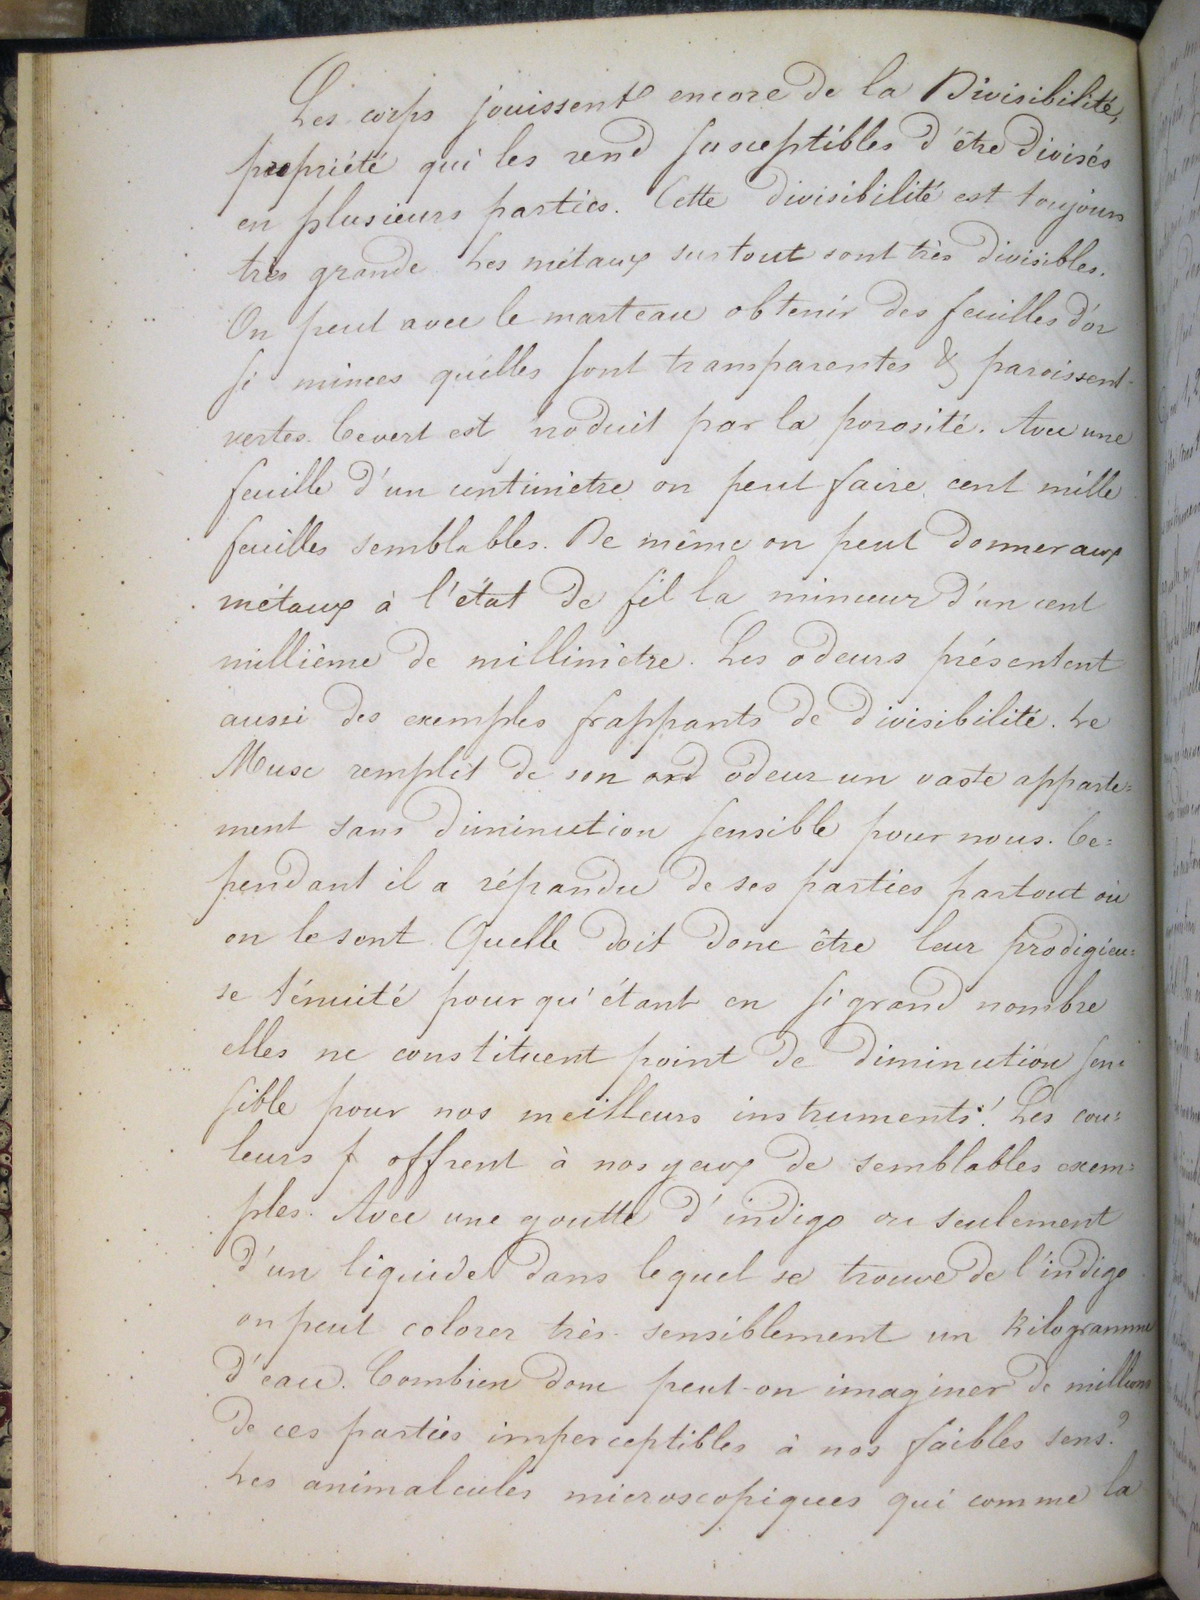 Les corps jouissent encore de la Divisibilité,
propriété qui les rend susceptibles d'être divisés
en plusieurs parties. Cette divisibilité est toujours
très grande. Les métaux surtout sont très divisibles.
On peut avec le marteau obtenir des feuilles d'or
si minces qu'elles sont transparentes & paroissent
vertes. Ce vert est produit par la porosité. Avec une
feuille d'un centimètre on peut faire cent mille
feuilles semblables. De même on peut donner aux
métaux à l'état de fil la minceur d'un cent
millième de millimètre. Les odeurs présentent
aussi des exemples frappants de divisibilité. Le
Musc remplit de son odeur un vaste apparte=
ment sans diminution sensible pour nous. Ce=
pendant il a répandu de ses parties partout où
on le sent. Quelle doit donc être leur prodigieu=
se ténuité pour qu'étant en si grand nombre
elles ne constituent point de diminution sen=
sible pour nos meilleurs instruments! Les cou=
leurs offrent à nos yeux de semblables exem=
ples. Avec une goutte d'indigo ou seulement
d'un liquide dans lequel se trouve de l'indigo
on peut colorer très sensiblement un kilogramme
d'eau. Combien donc peut-on imaginer de millions
de ces parties imperceptibles à nos faibles sens?
Les animalcules microscopiques qui comme la